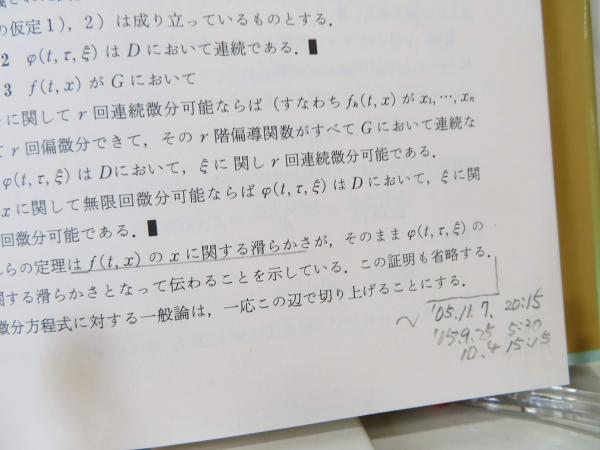 の仮定1), 2) は成り立っているものとする.
2 φ(t, τ, ξ) は D において連続である. ∎
3 f(t, x) が G において
に関して r 回連続微分可能ならば (すなわち fₖ(t, x) が x₁, …, xₙ
r 回偏微分できて, その r 階偏導関数がすべて G において連続な
φ(t, τ, ξ) は Dにおいて, ξ に関し r 回連続微分可能である.
x に関して無限回微分可能ならば φ(t, τ, ξ) は D において, ξ に関
回微分可能である. ∎
らの定理は f(t, x) の x に関する滑らかさが, そのまま φ(t, τ, ξ) の
関する滑らかさとなって伝わることを示している. この証明も省略する.
微分方程式に対する一般論は, 一応この辺で切り上げることにする.
'05.11.7. 20:15
'15.9.25 5:30
10.4 15:15